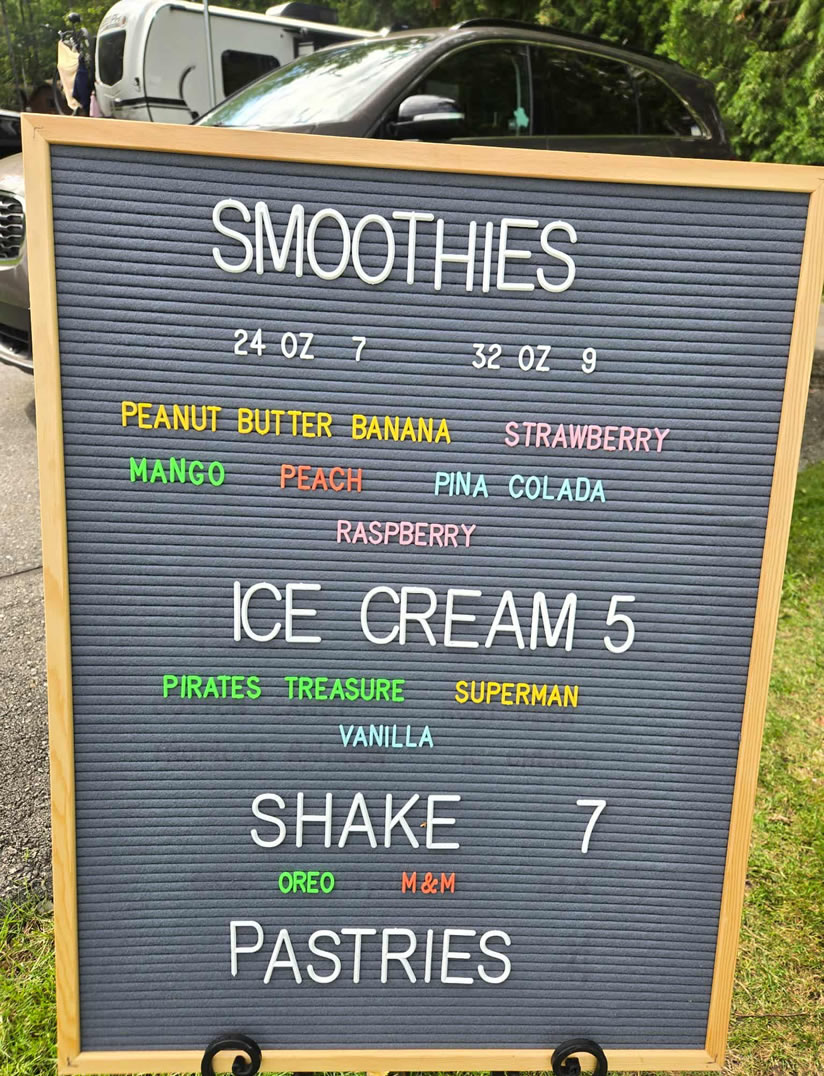 SMOOTHIES
24 OZ 7 32 OZ 9
PEANUT BUTTER BANANA STRAWBERRY
MANGO PEACH PINA COLADA
RASPBERRY
ICE CREAM 5
PIRATES TREASURE SUPERMAN
VANILLA
SHAKE 7
OREO M&M
PASTRIES